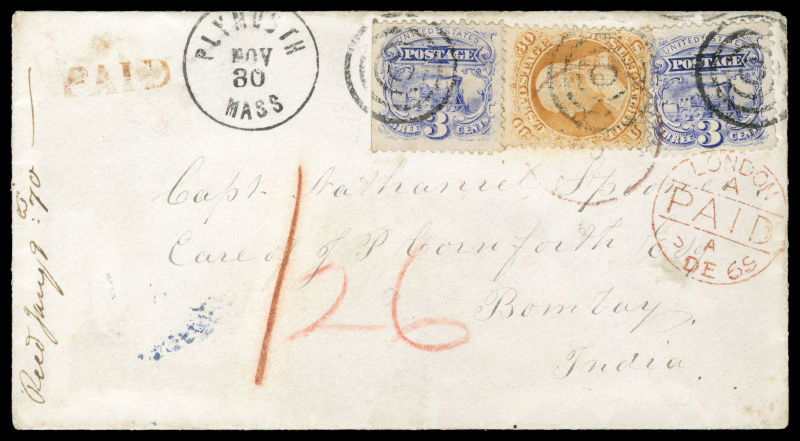 PLYMOUTH
NOV
30
MASS
PAID
UNITED STATES
POSTAGE
THREE 3 CENTS
30 U.S. POSTAGE 30
UNITED STATES
POSTAGE
THREE 3 CENTS
LONDON
A
PAID
A
DE 69
Capt Nathaniel Spooner
Care of J P Cornforth Esq
Bombay.
India.
1/26
Recd Jany 9th 70